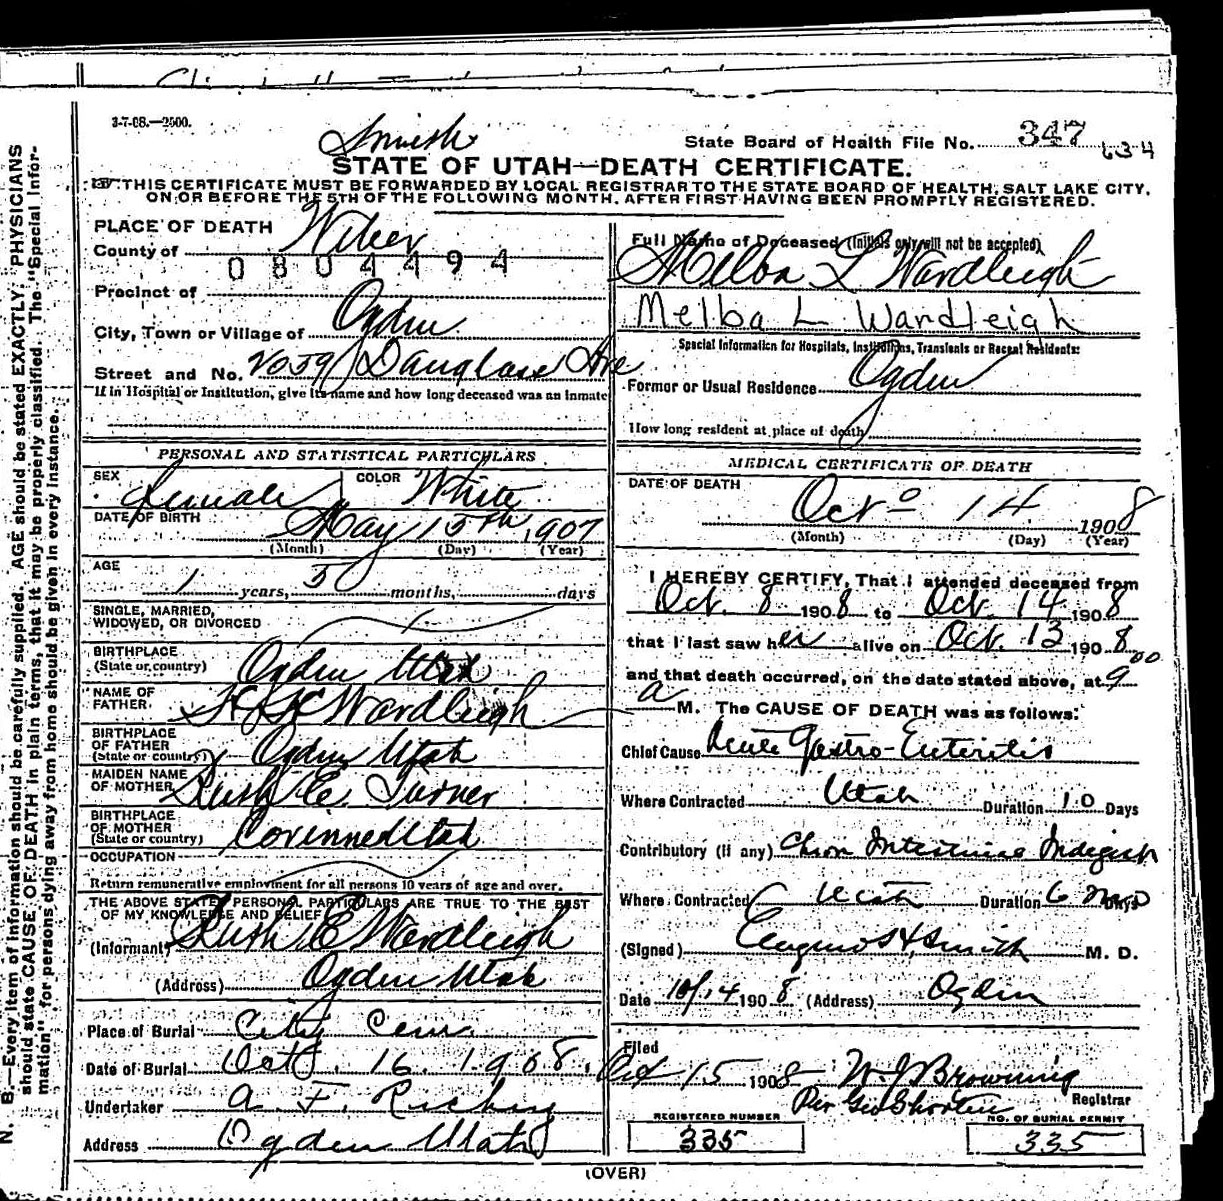 3-7-08.—2500.
Smith
State Board of Health File No. 347
634
STATE OF UTAH—DEATH CERTIFICATE.
THIS CERTIFICATE MUST BE FORWARDED BY LOCAL REGISTRAR TO THE STATE BOARD OF HEALTH, SALT LAKE CITY,
ON OR BEFORE THE 5TH OF THE FOLLOWING MONTH, AFTER FIRST HAVING BEEN PROMPTLY REGISTERED.
PLACE OF DEATH
County of Weber
0804494
Precinct of
City, Town or Village of Ogden
Street and No. 2059 Douglass Ave
If in Hospital or Institution, give its name and how long deceased was an inmate
PERSONAL AND STATISTICAL PARTICULARS
SEX Female COLOR White
DATE OF BIRTH May 15th, 1907
(Month) (Day) (Year)
AGE
1 years, 5 months, days
SINGLE, MARRIED,
WIDOWED, OR DIVORCED
BIRTHPLACE
(State or country) Ogden Utah
NAME OF
FATHER Wardleigh
BIRTHPLACE
OF FATHER
(State or country) Ogden Utah
MAIDEN NAME
OF MOTHER Rush E. Turner
BIRTHPLACE
OF MOTHER
(State or country) Corinne Utah
OCCUPATION
Return remunerative employment for all persons 10 years of age and over.
THE ABOVE STATED PERSONAL PARTICULARS ARE TRUE TO THE BEST
OF MY KNOWLEDGE AND BELIEF
(Informant) Rush E Wardleigh
(Address) Ogden Utah
Place of Burial City Cem.
Date of Burial Oct. 16. 1908.
Undertaker A. F. Richey
Address Ogden Utah
Full Name of Deceased (Initials only will not be accepted)
Melba L Wardleigh
Melba L Wardleigh
Special Information for Hospitals, Institutions, Transients or Recent Residents:
Former or Usual Residence Ogden
How long resident at place of death
MEDICAL CERTIFICATE OF DEATH
DATE OF DEATH
Oct 14 1908
(Month) (Day) (Year)
I HEREBY CERTIFY, That I attended deceased from
Oct. 8 1908 to Oct. 14 1908
that I last saw her alive on Oct. 13 1908
and that death occurred, on the date stated above, at 9 00
a M. The CAUSE OF DEATH was as follows:
Chief Cause Acute Gastro-Enteritis
Where Contracted Utah Duration 10 Days
Contributory (if any) Chron Intestinal Indigest
Where Contracted Utah Duration 6 mo Days
(Signed) H. Smith M. D.
Date 10/14 1908 (Address) Ogden
Filed
Oct 15 1908 W J Browning
Registrar
Per Geo Shorten
REGISTERED NUMBER
335
NO. OF BURIAL PERMIT
335
(OVER)
N. B.—Every item of information should be carefully supplied. AGE should be stated EXACTLY. PHYSICIANS
should state CAUSE OF DEATH in plain terms, that it may be properly classified. The "Special Infor-
mation" for persons dying away from home should be given in every instance.